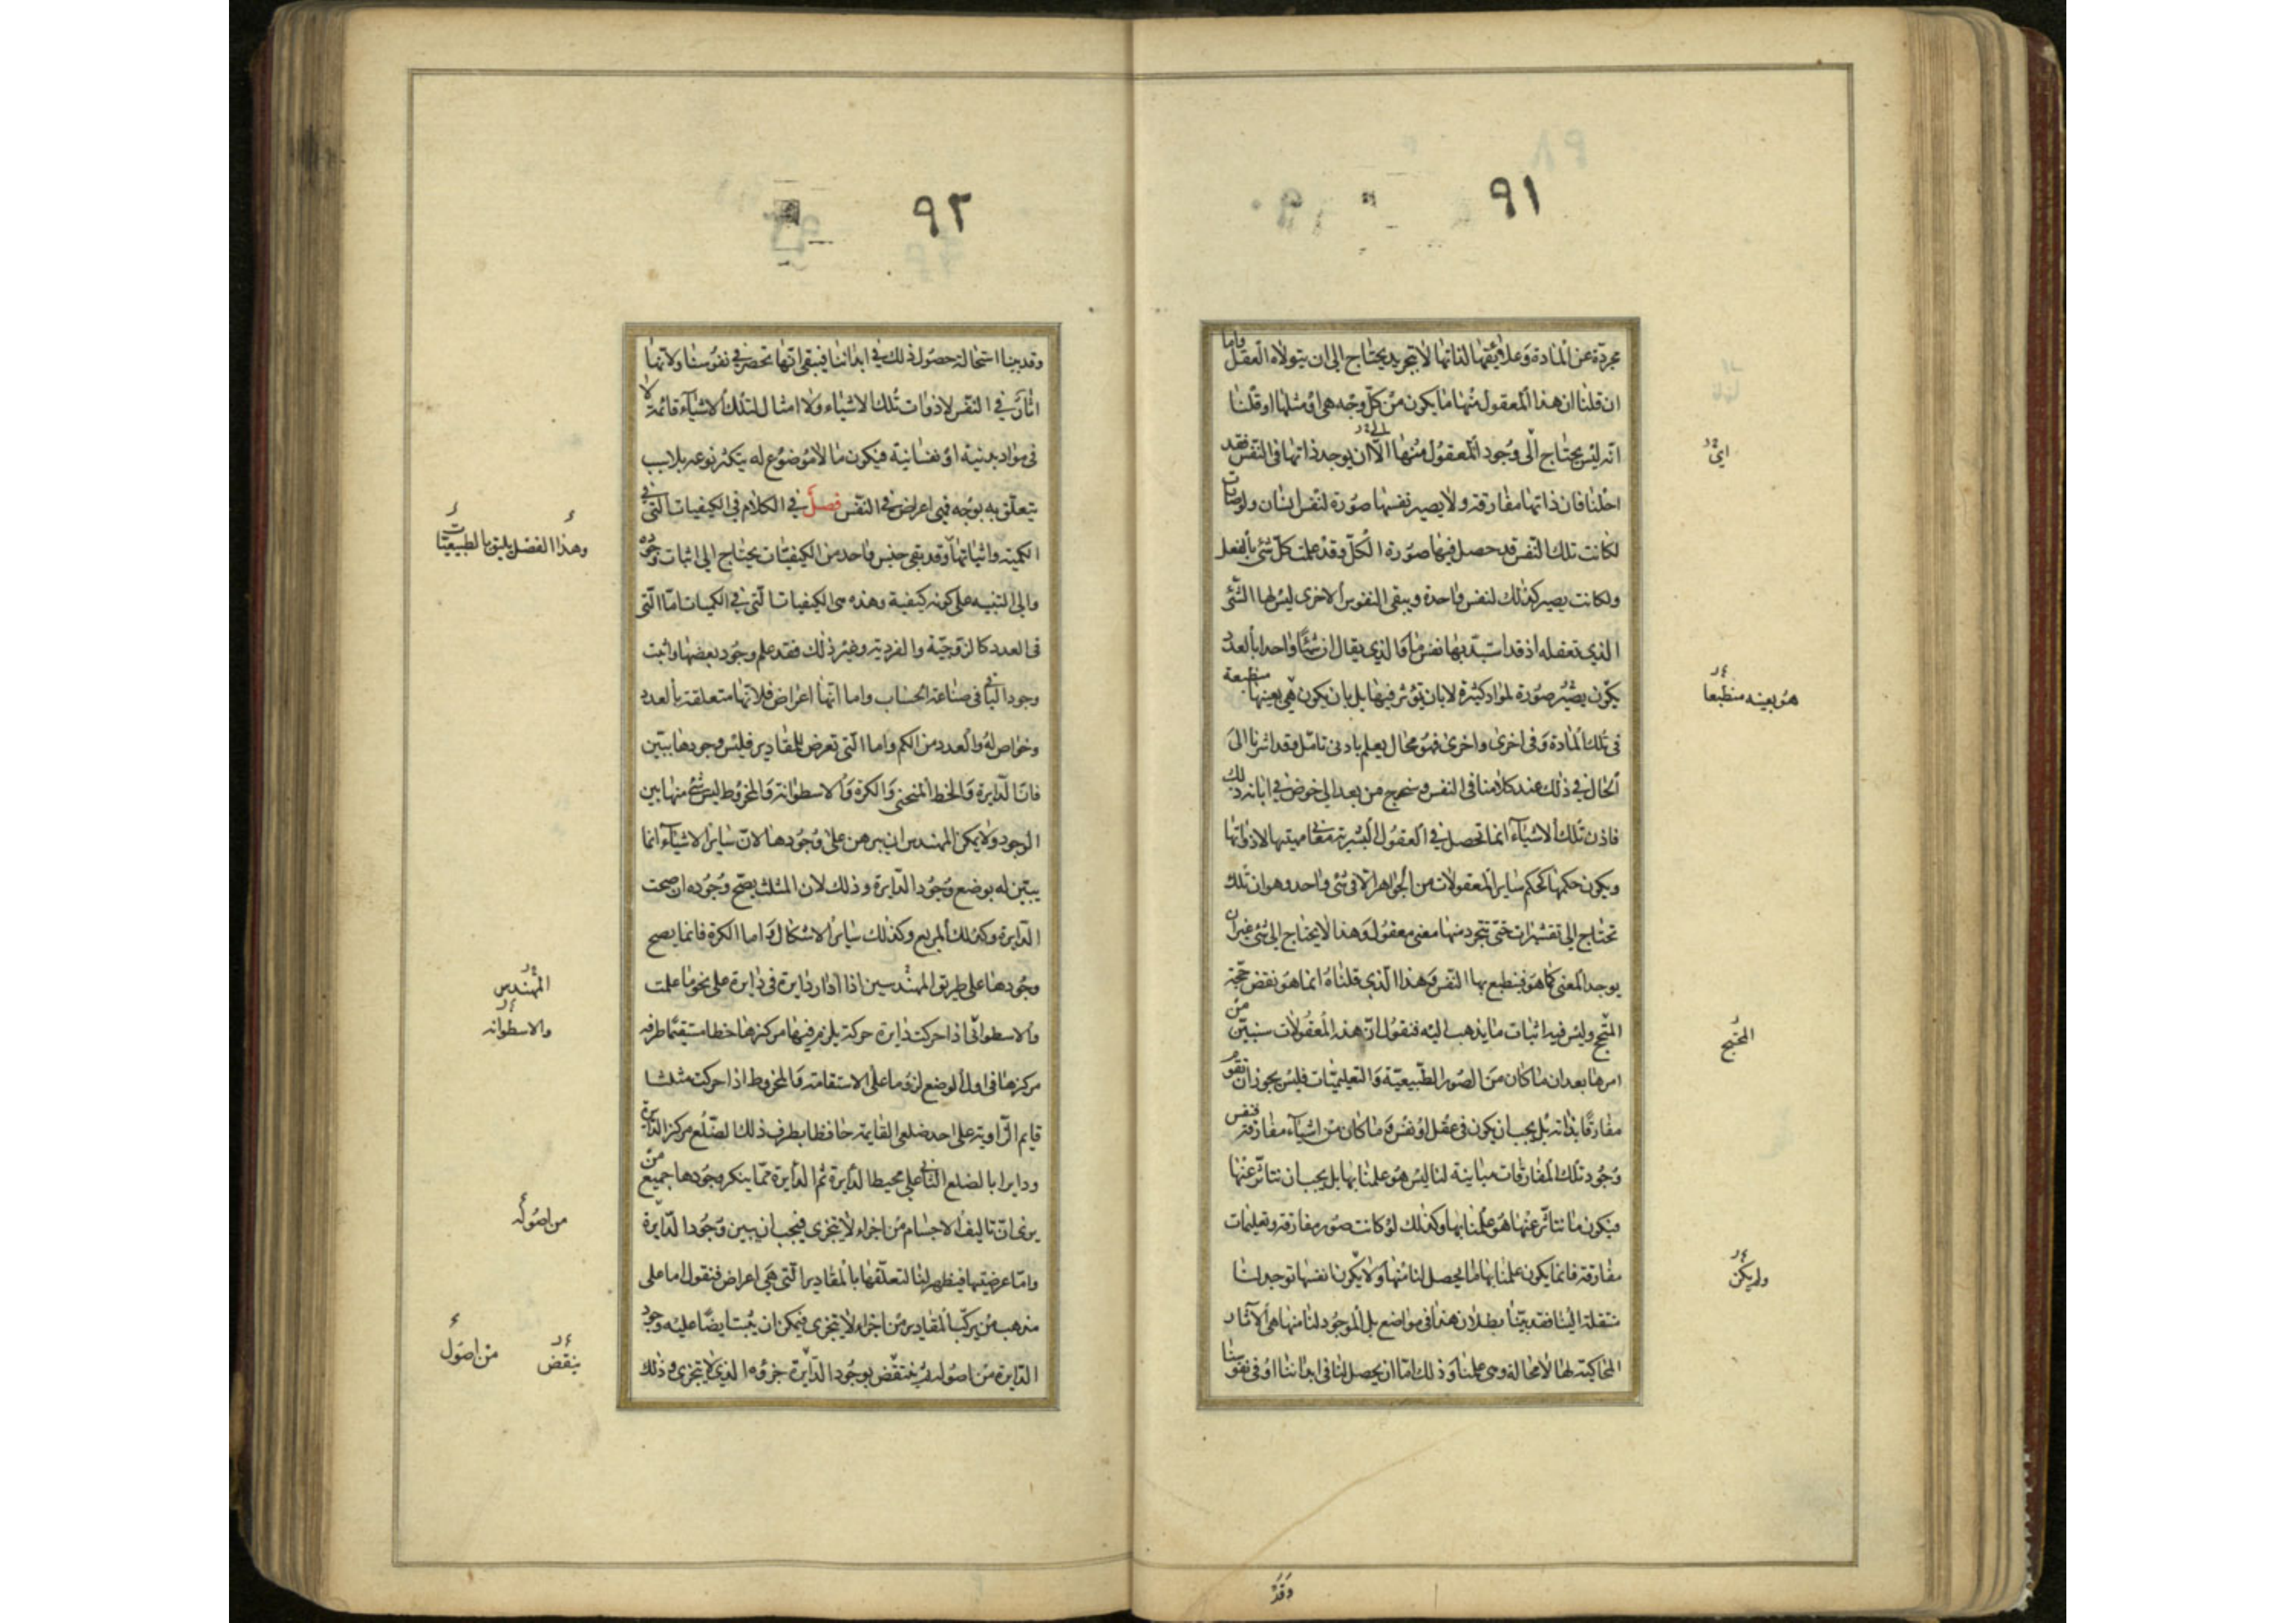 ٩١
مجردة عن المادة وعلائقها لذاتها لا تجريد يحتاج الى ان يتولاه العقل واما
ان قلنا ان هذا المعقول منها ما يكون من كل وجه هى او مثلها او قلنا
انه ليس يحتاج الى وجود المعقول منها الا ان يوجد ذاتها فى النفس فقد
احلنا فان ذاتها مفارقة ولا يصير نفسها صورة لنفس انسان ولو صارت
لكانت تلك النفس قد حصل فيها صورة الكل وقد علمت كل شئ بالفعل
ولكانت يصير كذلك لنفس واحدة ويبقى النفوس الاخرى ليس لها الشئ
الذى تعقله اذ قد استبد بها نفس ما والذى يقال ان شيئا واحدا بالعدد
يكون يصير صورة لمواد كثيرة لا بان تؤثر فيها بل بان يكون هى بعينها منطبعة
فى تلك المادة وفى اخرى واخرى فهو محال يعلم بادنى تامل وقد اشرنا الى
الحال فى ذلك عند كلامنا فى النفس وسنخرج من بعد الى خوض فى ابانة ذلك
فاذن تلك الاشياء انما تحصل فى العقول البشرية معانى مهيتها لا ذواتها
ويكون حكمها كحكم ساير المعقولات من الجواهر الا فى شئ واحد وهو ان تلك
تحتاج الى تقشيرات حتى تتجرد منها معنى معقول وهذا لا يحتاج الى شئ غير ان
يوجد المعنى كما هو فينطبع بها النفس وهذا الذى قلناه انما هو نقض حجة
المحتج وليس فيه اثبات ما يذهب اليه فنقول ان هذه المعقولات سنبين من
امرها بعد ان ما كان من الصور الطبيعية والتعليميات فليس يجوز ان تقوم
مفارقا بذاته بل يجب ان يكون فى عقل او نفس وما كان من اشياء مفارقة فنفس
وجود تلك المفارقات مباينة لنا ليس هو علمنا بها بل يجب ان نتاثر عنها
فيكون ما نتاثر عنها هو علمنا بها وكذلك لو كانت صور مفارقة وتعليمات
مفارقة فانما يكون علمنا بها ما يحصل لنا منها ولا يكون انفسها توجد لنا
منتقلة الينا فقد بينا بطلان هذا فى مواضع بل الموجود لنا منها هى الآثار
المحاكية لها لا محالة وهى علمنا وذلك اما ان يحصل لنا فى ابداننا او فى نفوسنا
هو بعينه منطبعا
المحتج
ولم يكن
وقد
٩٢
وقد بينا استحالة حصول ذلك فى ابداننا فيبقى انها تحضر فى نفوسنا ولانها
اثار فى النفس لا ذوات تلك الاشياء ولا امثال لتلك الاشياء قائمة لا
فى مواد بدنية او نفسانية فيكون ما لا موضوع له يتكثر نوعه بلا سبب
يتعلق به بوجه فهى اعراض فى النفس فصل فى الكلام فى الكيفيات التى فى
الكمية واثباتها وقد بقى جنس واحد من الكيفيات يحتاج الى اثبات وجوده
والى التنبيه على كونه كيفية وهذه هى الكيفيات التى فى الكميات اما التى
فى العدد كالزوجية والفردية وغير ذلك فقد علم وجود بعضها واثبت
وجود الباقى فى صناعة الحساب واما انها اعراض فلانها متعلقة بالعدد
وخواص له والعدد من الكم واما التى تعرض للمقادير فليس وجودها ببين
فان الدايرة والخط المنحنى والكرة والاسطوانة والمخروط ليس شئ منها بين
الوجود ولا يمكن المهندس ان يبرهن على وجودها لان ساير الاشياء انما
يبين له بوضع وجود الدايرة وذلك لان المثلث يصح وجوده ان صحت
الدايرة وكذلك المربع وكذلك ساير الاشكال واما الكرة فانما يصح
وجودها على طريق المهندسين اذا ادار دايرة فى دايرة على نحو ما علمت
والاسطوانى اذا حركت دايرة حركة يلزم فيها مركزها خطا مستقيما طرفه
مركزها فى اول الوضع لزوما على الاستقامة والمخروط اذا حركت مثلثا
قايم الزاوية على احد ضلعى القايمة حافظا بطرف ذلك الضلع مركز الدايرة
ودايرا بالضلع الثانى على محيط الدايرة ثم الدايرة مما ينكر وجودها جميع من
يرى ان تاليف الاجسام من اجزاء لا يتجزى فيجب ان يبين وجود الدايرة
واما عرضيتها فيظهر لنا لتعلقها بالمقادير التى هى اعراض فنقول اما على
مذهب من يركب المقادير من اجزاء لا يتجزى فيمكن ان يثبت ايضا عليه وجود
الدايرة من اصوله ثم ينتقض بوجود الدايرة جزؤه الذى لا يتجزى وذلك
وهذا الفصل يليق بالطبيعيات
المهندس
والاسطوانه
من اصوله
ينقض
من اصول